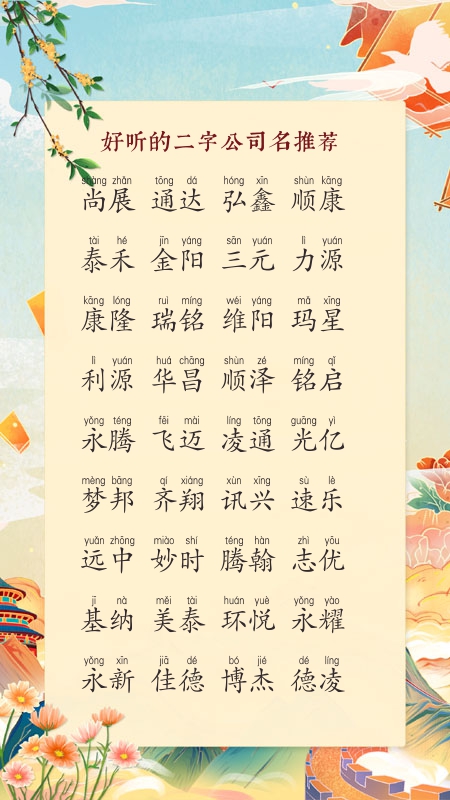 好听的二字公司名推荐
shàng zhǎn tōng dá hóng xīn shùn kāng
尚展 通达 弘鑫 顺康
tài hé jīn yáng sān yuán lì yuán
泰禾 金阳 三元 力源
kāng lóng rui míng wéi yáng mǎ xīng
康隆 瑞铭 维阳 玛星
lì yuán huá chāng shùn zé míng qǐ
利源 华昌 顺泽 铭启
yǒng téng fēi mài líng tōng guāng yì
永腾 飞迈 凌通 光亿
mèng bāng qí xiáng xùn xīng sù lè
梦邦 齐翔 讯兴 速乐
yuǎn zhōng miào shí téng hàn zhì yōu
远中 妙时 腾翰 志优
jī nà měi tài huán yuè yǒng yào
基纳 美泰 环悦 永耀
yǒng xīn jiā dé bó jié dé líng
永新 佳德 博杰 德凌